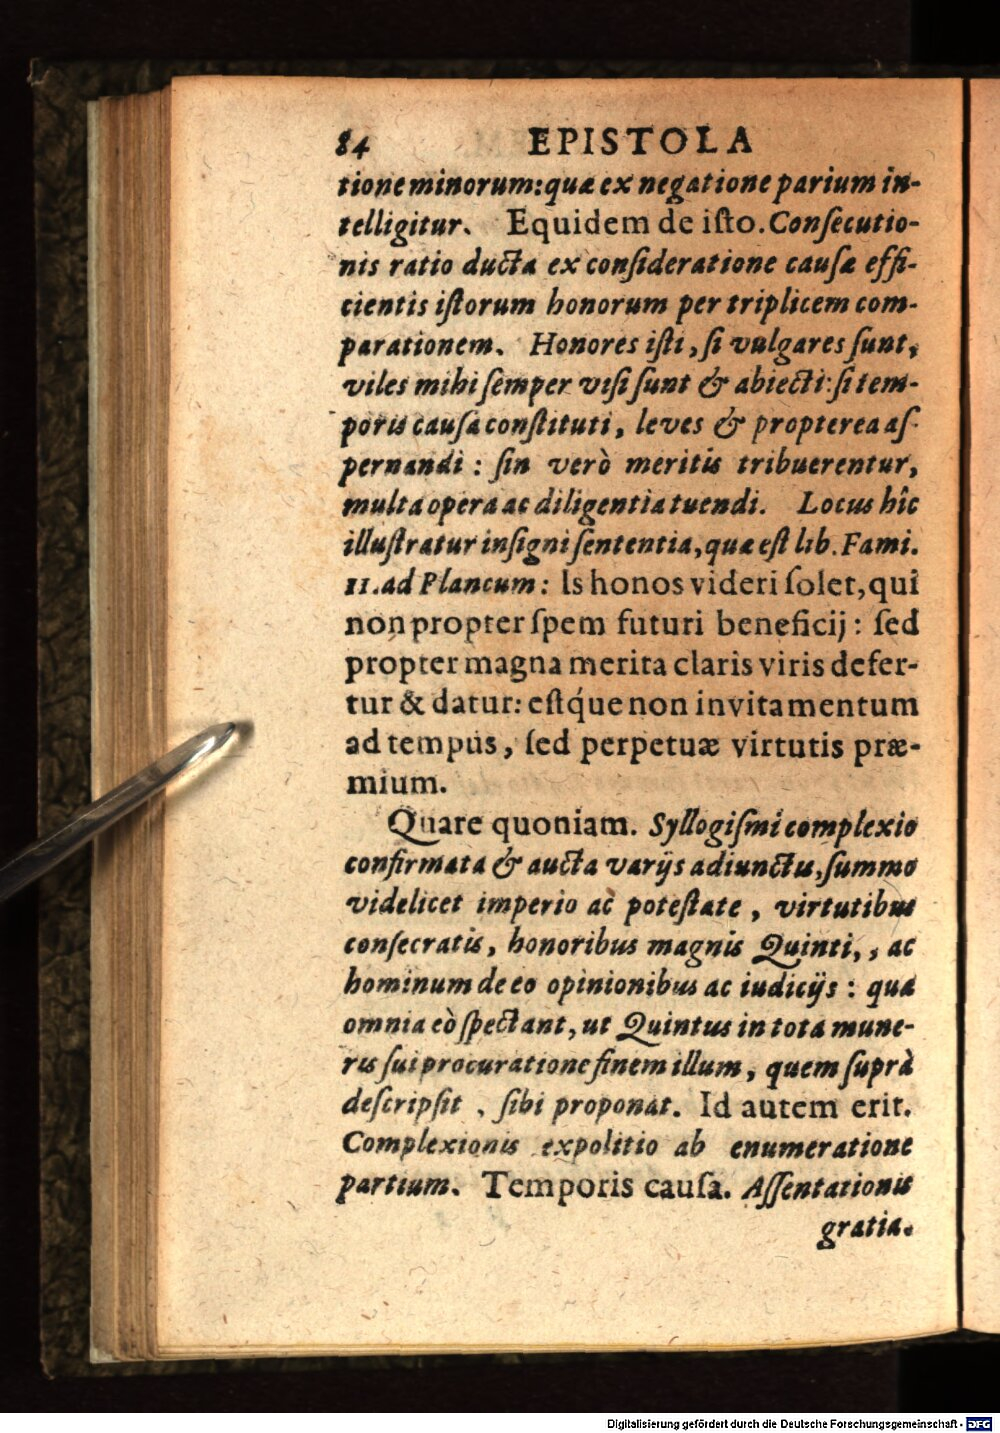 84 EPISTOLA
tione minorum: quæ ex negatione parium in-
telligitur. Equidem de iſto. Conſecutio-
nis ratio ducta ex conſideratione cauſæ effi-
cientis iſtorum honorum per triplicem com-
parationem. Honores iſti, ſi vulgares ſunt,
viles mihi ſemper viſi ſunt & abiecti: ſi tem-
poris cauſa conſtituti, leves & propterea aſ-
pernandi: ſin verò meritis tribuerentur,
multa opera ac diligentia tuendi. Locus hîc
illuſtratur inſigni ſententia, quæ eſt lib. Fami.
11. ad Plancum: Is honos videri ſolet, qui
non propter ſpem futuri beneficij: ſed
propter magna merita claris viris defer-
tur & datur: eſtq́ue non invitamentum
ad tempus, ſed perpetuæ virtutis præ-
mium.
Quare quoniam. Syllogiſmi complexio
confirmata & aucta varijs adiunctis, ſummo
videlicet imperio ac poteſtate, virtutibus
conſecratis, honoribus magnis Quinti, , ac
hominum de eo opinionibus ac iudicijs: quæ
omnia eò ſpectant, ut Quintus in tota mune-
ris ſui procuratione finem illum, quem ſuprà
deſcripſit, ſibi proponat. Id autem erit.
Complexionis expolitio ab enumeratione
partium. Temporis cauſa. Aſſentationis
gratia.
Digitalisierung gefördert durch die Deutsche Forschungsgemeinschaft - DFG